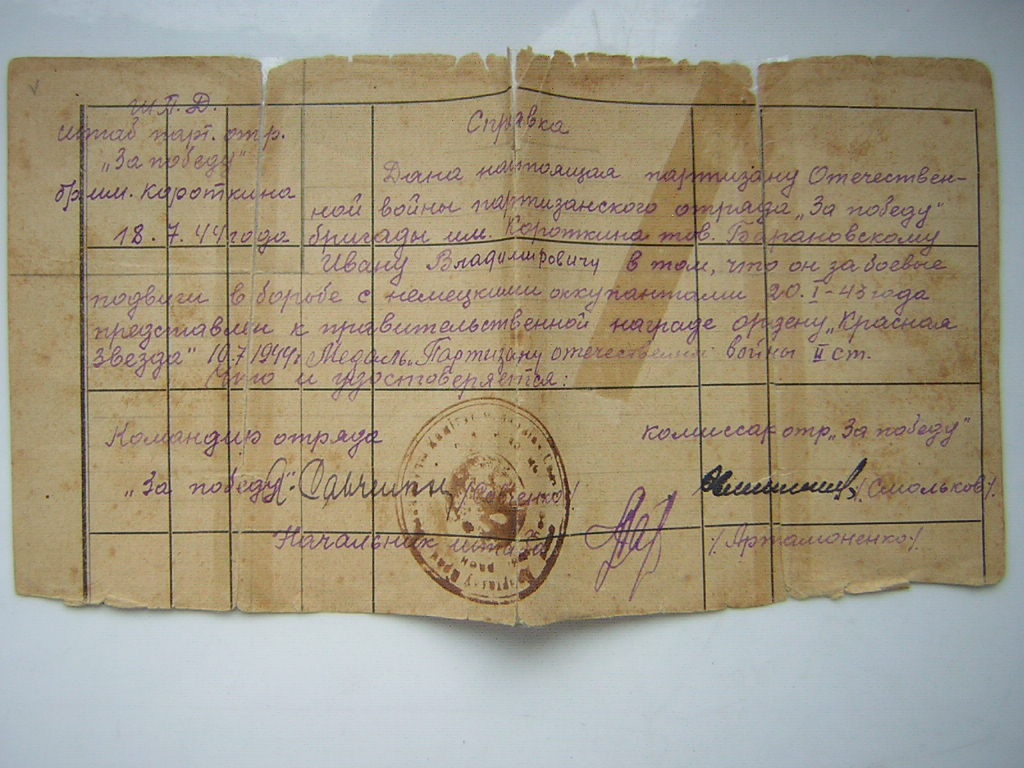 Ш.П.Д.
штаб парт. отр.
„За победу"
бр. им. Короткина
18.7.44 года
Справка
Дана настоящая партизану Отечествен-
ной войны партизанского отряда „За победу"
бригады им. Короткина тов. Барановскому
Ивану Владимировичу в том, что он за боевые
подвиги в борьбе с немецкими оккупантами 20.I-43 года
представлен к правительственной награде ордену „Красная
Звезда" 10.7.1944г. Медаль „Партизану отечественной войны II ст.
Что и удостоверяется:
Командир отряда
„За победу"
комиссар отр. „За победу"
/Смольков/.
Начальник штаба
/Артамоненко/.